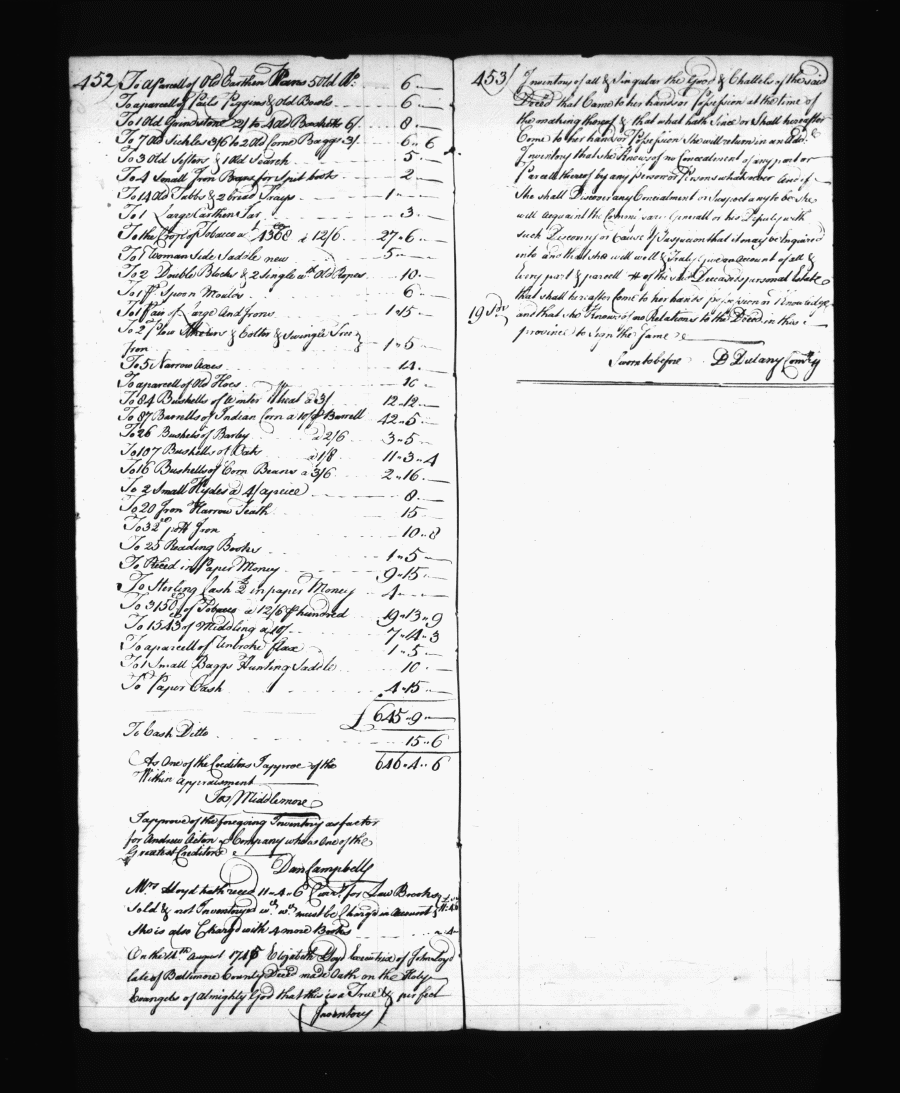 452 To a Parcell of Old Earthen Pans 5 Old Do. 6 "—
To a parcell of Pails Piggins & Old Bowls 6 "—
To 1 Old Grindstone 2/ to 4 Old Bucketts 6/ 8 "—
To 7 Old Sickles 3/6 to 2 Old Corn Baggs 3/. 6 " 6
To 3 Old Sifters & 1 Old Search 5 "—
To 4 Small Iron Bran for Spit 2 "—
To 14 Old Tubbs & 2 bread Trays 1 "—
To 1 Large Earthen Jar 3 "—
To the Crop of Tobacco at 4368 a 12/6 27 " 6 "—
To 1 Woman Side Saddle new 5 "—
To 2 Double Blocks & 2 Single wth. Old Ropes 10 "—
To 1 pr. Spoon Moulds 6 "—
To 1 Pair of Large Andirons 1 " 15 "—
To 2 Plow & Colter & Swingle Tree
Iron 1 " 5 "—
To 5 Narrow Axes 14 "—
To a parcell of Old Hoes 16 "—
To 84 Bushells of Winter Wheat a 3/ 12 " 12 "—
To 87 Barrells of Indian Corn a 10/ pr Barrell 42 " 5 "—
To 26 Bushels of Barley a 2/6 3 " 5 "—
To 107 Bushells of Oats a 1/8 11 " 3 " 4
To 16 Bushells of Corn Beans a 3/6 2 " 16 "—
To 2 Small Hydes a 4/ apeice 8 "—
To 20 Iron Harrow Teath 15 "—
To 32 Iron 10 " 8
To 25 Reading Books 1 " 5 "—
To Reced in Paper Money 9 " 15 "—
To Sterling Cash in paper Money 4 "—
To 3150 of Tobacco a 12/6 pr hundred 19 " 13 " 9
To 1543 of Middling a 10/ 7 " 14 " 3
To a parcell of Unbroke flax 1 " 5 "—
To 1 Small Baggs Hunting Saddle 10 "—
To Paper Cash 4 " 15 "—
£ 645 " 9 "—
To Cash Ditto 15 " 6
646 " 4 " 6
As One of the Creditors I approve of the
Within appraisment
Jos. Middlemore
I approve of the foregoing Inventory as factor
for Andrew Acton & Company who is One of the
Greatest Creditors
Dan Campbell
Mrs Lloyd hath reced 11 " 4 " 6 Curr. for Law Books
Sold & not Inventoryd wch. must be Chargd in Account
She is also Chargd with 4 more Books
On the 14th August 174 Elizabeth Lloyd Executrix of John Loyd
late of Baltimore County Deced made Oath on the Holy
Evangels of Almighty God that this is a True & perfect
Inventory
453 Inventory of all & Singular the Goods & Chattels of the said
Deced that Came to her hands or Possession at the time of
the making thereof & that what hath Since or Shall hereafter
Come to her hands or Possession She will return in an Add.
Inventory that she Knows of no Concealment of any part or
Parcell thereof by any person or Persons whatsoever And if
She shall Discover any Concealment or Suspect any to be She
will acquaint the Commissary Generall or his Deputy with
such Discovery or Cause of Suspicon that it may be Enquired
into and that she will well & Truly give an Account of all &
Every part & parcell of the said Deceaseds personal Estate
that shall hereafter Come to her hands possession or Knowledge
and that she Knows of no Relations to the Deced in this
province to Sign the Same
Sworn to before D Dulany Comry